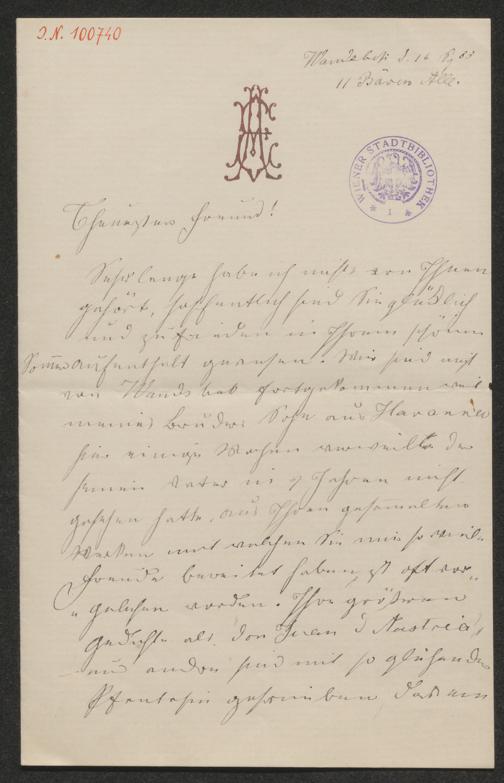 J.N. 100740
Wandsbek d. 16 83
11 Bären Allee.
WIENER STADTBIBLIOTHEK
1
Theuerster Freund!
Sehr lange habe ich nichts von Ihnen
gehört, hoffentlich sind Sie glücklich
und zufrieden in Ihrem schönen
Sommeraufenthalt gewesen. Wir sind nicht
von Wandsbek fortgekommen weil
meines Bruders Sohn aus Havanna
hier einige Wochen verweilte der
seinen Vater in 9 Jahren nicht
gesehen hatte, aus Ihren gesammelten
Werken mit welchen Sie mir so viel
Freude bereitet haben, ist oft vor-
gelesen worden. Ihre größeren
Gedichte als Don Juan d'Austria,
und andre sind mit so glühender
Phantasie geschrieben